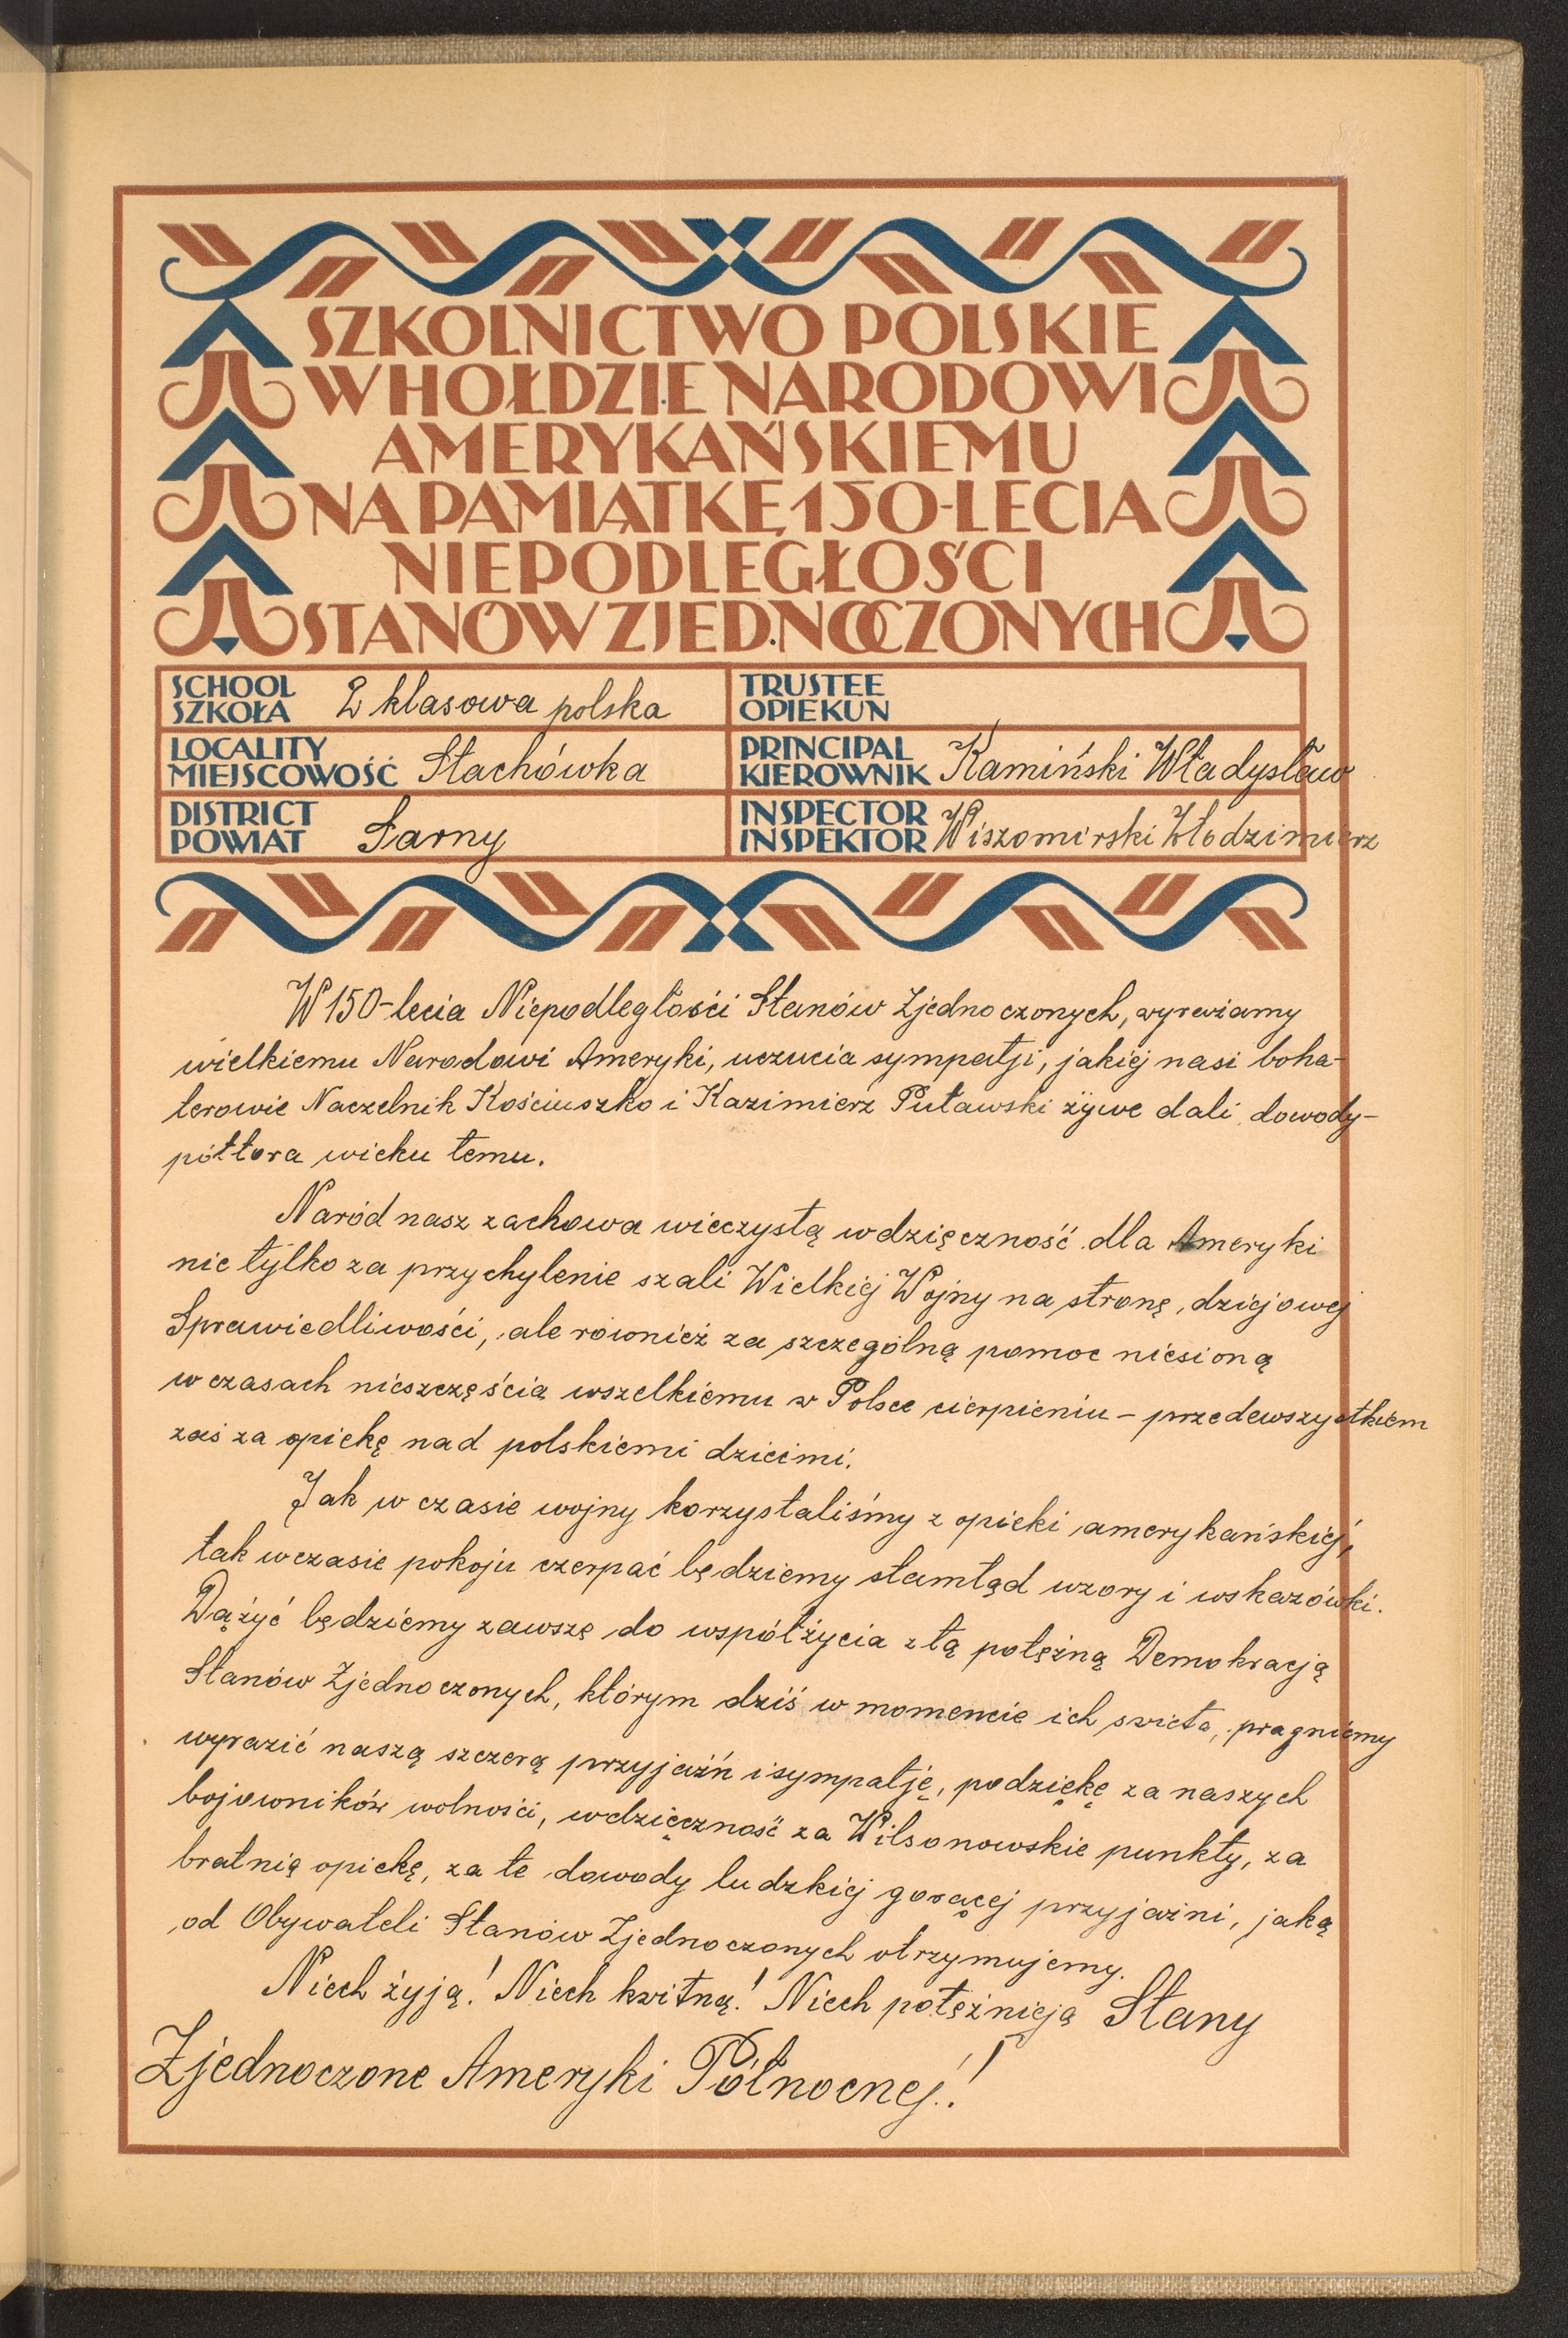 SZKOLNICTWO POLSKIE
W HOŁDZIE NARODOWI
AMERYKAŃSKIEMU
NA PAMIĄTKĘ 150-LECIA
NIEPODLEGŁOŚCI
STANÓW ZJEDNOCZONYCH
SCHOOL
SZKOŁA 2 klasowa polska
TRUSTEE
OPIEKUN
LOCALITY
MIEJSCOWOŚĆ Stachówka
PRINCIPAL
KIEROWNIK Kamiński Władysław
DISTRICT
POWIAT Sarny
INSPECTOR
INSPEKTOR Wiszomirski Włodzimierz
W 150-lecia Niepodległości Stanów Zjednoczonych, wyrażamy
wielkiemu Narodowi Ameryki, uczucia sympatji, jakiej nasi boha-
terowie Naczelnik Kościuszko i Kazimierz Puławski żywe dali dowody-
półtora wieku temu.
Naród nasz zachowa wieczystą wdzięczność dla Ameryki
nie tylko za przychylenie szali Wielkiej Wojny na stronę, dziejowej
Sprawiedliwości, ale również za szczególną pomoc niesioną
w czasach nieszczęścia wszelkiemu w Polsce cierpieniu - przedewszystkiem
zaś za opiekę nad polskiemi dziećmi.
Jak w czasie wojny korzystaliśmy z opieki amerykańskiej,
tak w czasie pokoju czerpać będziemy stamtąd wzory i wskazówki.
Dążyć będziemy zawszę do współżycia z tą potężną Demokracją
Stanów Zjednoczonych, którym dziś w momencie ich swięta, pragniemy
wyrazić naszą szczerą przyjaźń i sympatję, podziękę za naszych
bojowników wolności, wdzięczność za Wilsonowskie punkty, za
bratnią opiekę, za te dowody ludzkiej gorącej przyjaźni, jaką
od Obywateli Stanów Zjednoczonych otrzymujemy.
Niech żyją! Niech kwitną! Niech potężnieją Stany
Zjednoczone Ameryki Północnej!